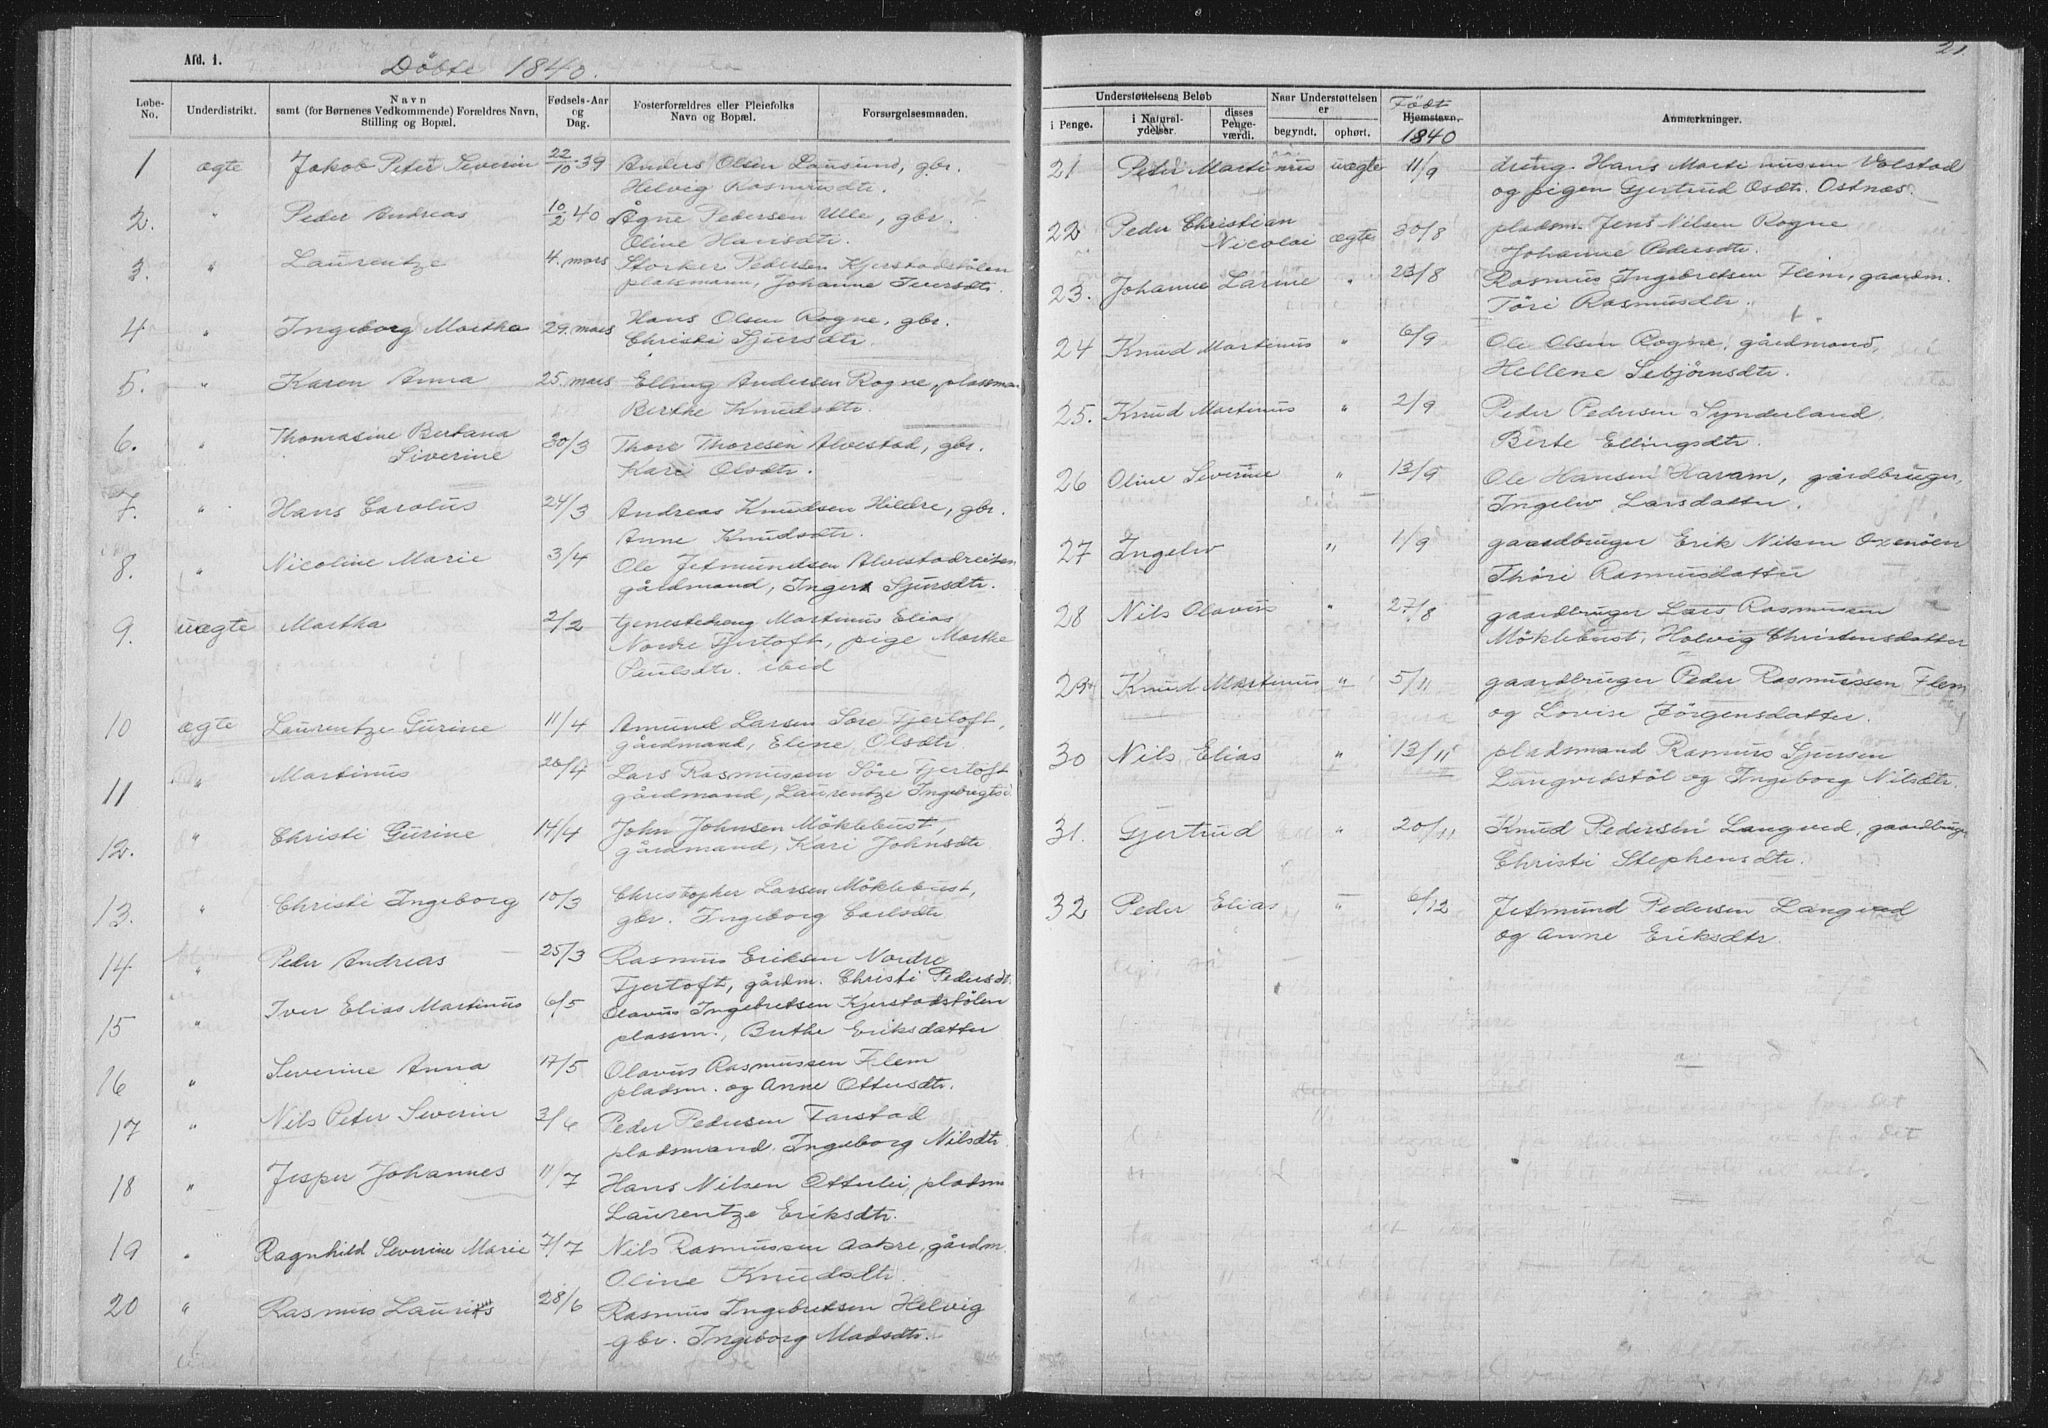 Afd. 1.
Döbte 1840.
Løbe-No.
Underdistrikt.
Navn
samt (for Børnenes Vedkommende) Forældres Navn,
Stilling og Bopæl.
Fødsels-Aar
og
Dag.
Fosterforældres eller Pleiefolks
Navn og Bopæl.
Forsørgelsesmaaden.
1 ægte Jakob Peter Severin 22/10 39 Anders Olsen Lausund, gbr.
Helvig Rasmusdtr.
2. " Peder Andreas 10/2 40 Ågne Pedersen Ulle, gbr.
Oline Hansdtr.
3. " Laurentze 4. mars Storker Pedersen Kjerstadstölen
platsmann, Johanne Iversdtr.
4 " Ingeborg Martha 29. mars Hans Olsen Rogne, gbr.
Christi Sjursdtr.
5. " Karen Anna 25. mars Elling Andersen Rogne, plassman
Berthe Knudsdtr.
6. " Thomasine Bertana
Siverine 30/3 Thore Thoresen Alvestad, gbr.
Kari Olsdtr.
7. " Hans Carolus 24/3 Andreas Knudsen Hildre, gbr.
Anne Knudsdtr.
8. " Nicoline Marie 3/4 Ole Jetmundsen Alvestadreiten
gårdmand, Inger Sjursdtr.
9. uægte Martha 2/2 Tjenestedreng Martinus Elias
Nordre Fjertoft, pige Marthe
Paulsdtr. ibid
10 ægte Laurentze Gurine 11/4 Amund Larsen Söre Fjertoft,
gårdmand, Eline Olsdtr.
11 " Martinus 20/4 Lars Rasmussen Söre Fjertoft
gårdmand, Laurentze Ingebregtsd
12. " Christi Gurine 14/4 John Johnsen Möklebust,
gårdmand, Kari Johnsdtr
13. " Christi Ingeborg 10/3 Christopher Larsen Möklebust,
gbr. Ingeborg Carlsdtr
14 " Peder Andreas 25/3 Rasmus Eriksen Nordre
Fjertoft, gårdm. Christi Pedersdtr.
15 " Iver Elias Martinus 6/5 Olavus Ingebretsen Kjerstadstölen
plassm., Berthe Eriksdatter
16 " Severine Anna 17/5 Olavus Rasmussen Flem
pladsm. og Anne Ottersdtr.
17 " Nils Peter Severin 3/6 Peder Pedersen Farstad
pladsmand. Ingeborg Nilsdtr.
18 " Jesper Johannes 11/7 Hans Nilsen Otterlei, pladsm
Laurentze Eriksdtr.
19 " Ragnhild Severine Marie 7/7 Nils Rasmussen Aakre, gårdm.
Oline Knudsdtr.
20 " Rasmus Laurits 28/6 Rasmus Ingebretsen Helvig
gbr. Ingeborg Madsdtr.
21.
Understøttelsens Beløb
i Penge.
i Natural-
ydelser.
disses
Penge-
værdi.
Naar Understøttelsen
er
begyndt.
ophørt.
Født
Hjemstavn.
1840
Anmærkninger.
21 Peter Martinus uægte 11/9 dreng Hans Martinussen Valstad
og pigen Gjertrud Osdtr. Ostnæs.
22 Peder Christian
Nicolai ægte 30/8 pladsm. Jens Nilsen Rogne
Johanne Pedersdtr.
23. Johanne Larine " 23/8 Rasmus Ingebretsen Flem, gaardm.
Töri Rasmusdtr.
24 Knud Martinus " 6/9 Ole Olsen Rogne, gårdmand,
Hellene Sebjörnsdtr.
25. Knud Martinus " 2/9 Peder Pedersen Synderland,
Berte Ellingsdtr.
26 Oline Severine " 13/9 Ole Hansen Haram, gårdbruger,
Ingeliv Larsdatter.
27 Ingeliv " 1/9 gaardbruger Erik Nilsen Oxenöen
Thöri Rasmusdatter
28 Nils Olavus " 27/8 gaardbruger Lars Rasmussen
Möklebust, Helvig Christensdatter
29 Knud Martinus " 5/11 gaardbruger Peder Rasmussen Flem
og Lovise Jörgensdatter.
30 Nils Elias " 13/11 pladsmand Rasmus Sjursen
Langvedstöl og Ingeborg Nilsdtr.
31. Gjertrud " 20/11 Knud Pedersen Langved, gaardbruger
Christi Stephensdtr.
32 Peder Elias " 6/12 Jetmund Pedersen Langved
og Anne Eriksdtr.